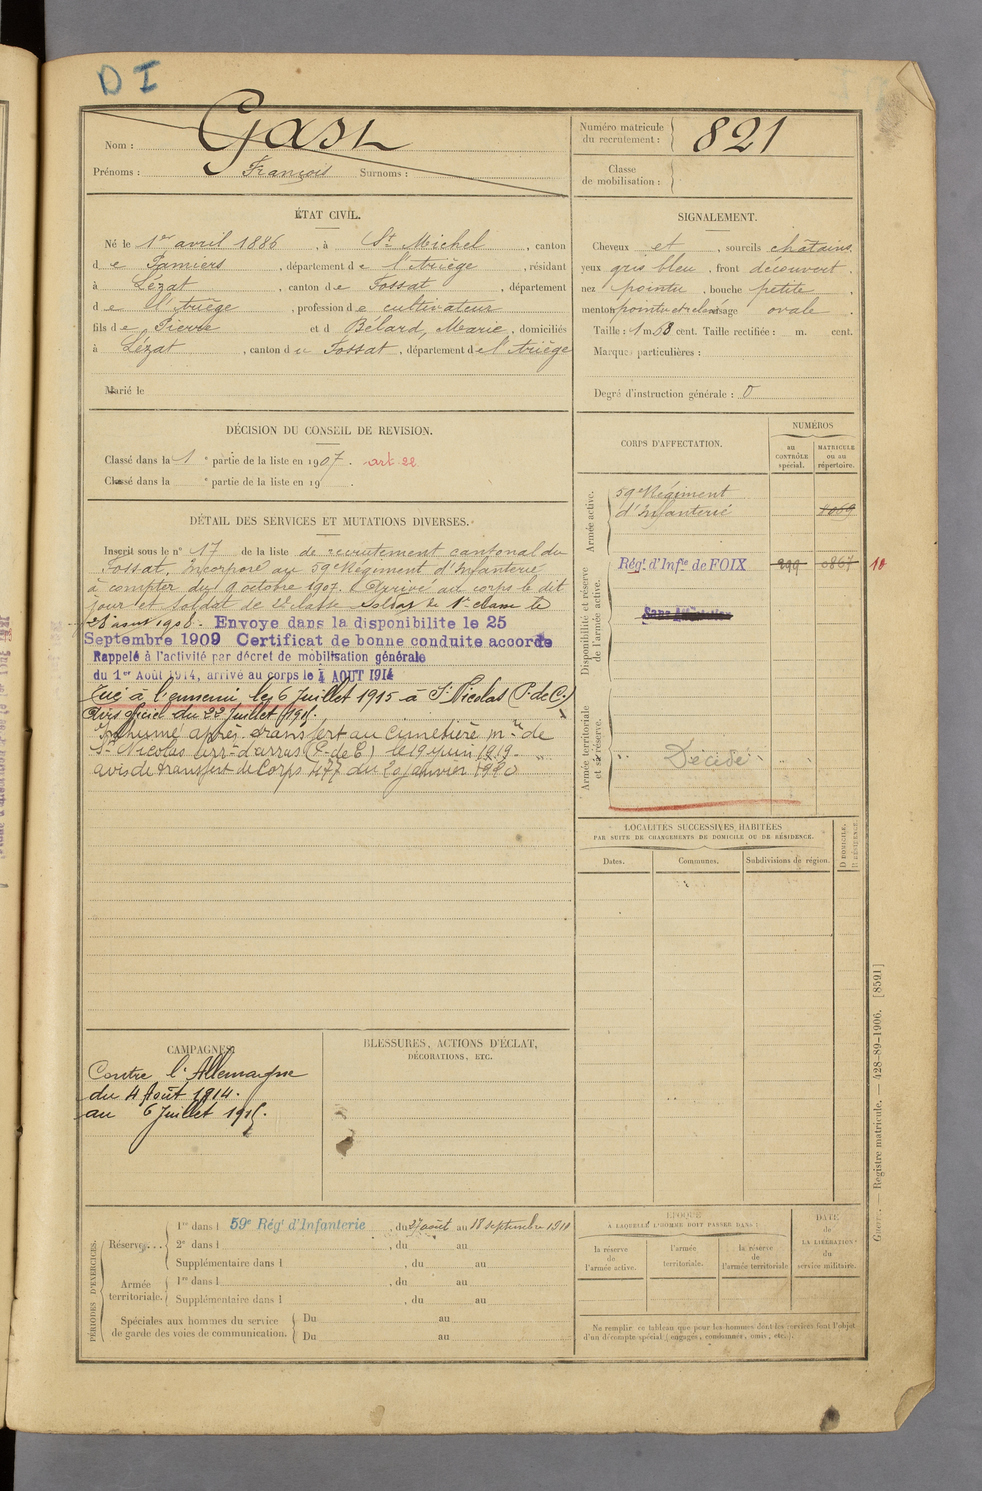 D I
Nom : Gast
Prénoms : François Surnoms :
Numéro matricule du recrutement : 821
Classe de mobilisation :
ÉTAT CIVIL.
Né le 1er avril 1886, à St Michel, canton
de Pamiers, département de l'Ariège, résidant
à Lézat, canton de Fossat, département
de l'Ariège, profession de cultivateur
fils de Pierre et d Bélard, Marie, domiciliés
à Lézat, canton du Fossat, département de l'Ariège
Marié le
SIGNALEMENT.
Cheveux et, sourcils châtains
yeux gris bleu, front découvert,
nez pointu, bouche petite,
menton pointu et visage ovale.
Taille : 1 m 68 cent. Taille rectifiée : m. cent.
Marques particulières :
Degré d'instruction générale : 0
DÉCISION DU CONSEIL DE REVISION.
Classé dans la 1e partie de la liste en 1907. art 22
Classé dans la e partie de la liste en 19 .
DÉTAIL DES SERVICES ET MUTATIONS DIVERSES.
Inscrit sous le n° 17 de la liste de recrutement cantonal du
Fossat, Incorporé au 59e Régiment d'Infanterie
à compter du 9 octobre 1907. Arrivé au corps le dit
jour et soldat de 2e classe Soldat de 1e classe le
1908. Envoye dans la disponibilite le 25
Septembre 1909 Certificat de bonne conduite accorde
Rappelé à l'activité par décret de mobilisation générale
du 1er Août 1914, arrivé au corps le 4 AOUT 1914
Tué à l'ennemi le 6 Juillet 1915 à St Nicolas (P. de C.)
Avis officiel du 22 Juillet 1915.
Inhumé après transfert au Cimetière mre de
St Nicolas arrt d'arras (P. de C) le 19 juin 1919
avis de transfert de Corps 477 du 20 janvier 1920
CORPS D'AFFECTATION.
NUMÉROS
au CONTRÔLE spécial.
MATRICULE ou au répertoire.
Armée active.
59e Régiment
d'Infanterie
Disponibilité et réserve de l'armée active.
Rég. d'Infie de FOIX 299 0867 10
Armée territoriale et sa réserve.
Décédé
LOCALITÉS SUCCESSIVES HABITÉES
PAR SUITE DE CHANGEMENTS DE DOMICILE OU DE RÉSIDENCE.
Dates. Communes. Subdivisions de région. D DOMICILE. R RÉSIDENCE.
CAMPAGNES.
Contre l'Allemagne
du 4 Août 1914.
au 6 Juillet 1915.
BLESSURES, ACTIONS D'ÉCLAT,
DÉCORATIONS, ETC.
PÉRIODES D'EXERCICES.
Réserve... 1re dans l 59e Régt d'Infanterie, du 27 août au 18 septembre 1911
2e dans l , du au
Supplémentaire dans l , du au
Armée territoriale. 1re dans l , du au
Supplémentaire dans l , du au
Spéciales aux hommes du service de garde des voies de communication. Du au
Du au
ÉPOQUE
À LAQUELLE L'HOMME DOIT PASSER DANS :
la réserve de l'armée active.
l'armée territoriale.
la réserve de l'armée territoriale
DATE de LA LIBÉRATION du service militaire.
Ne remplir ce tableau que pour les hommes dont les services font l'objet
d'un décompte spécial (engagés, condamnés, omis, etc.).
Guerre. — Registre matricule. — 428-89-1906. [8591]